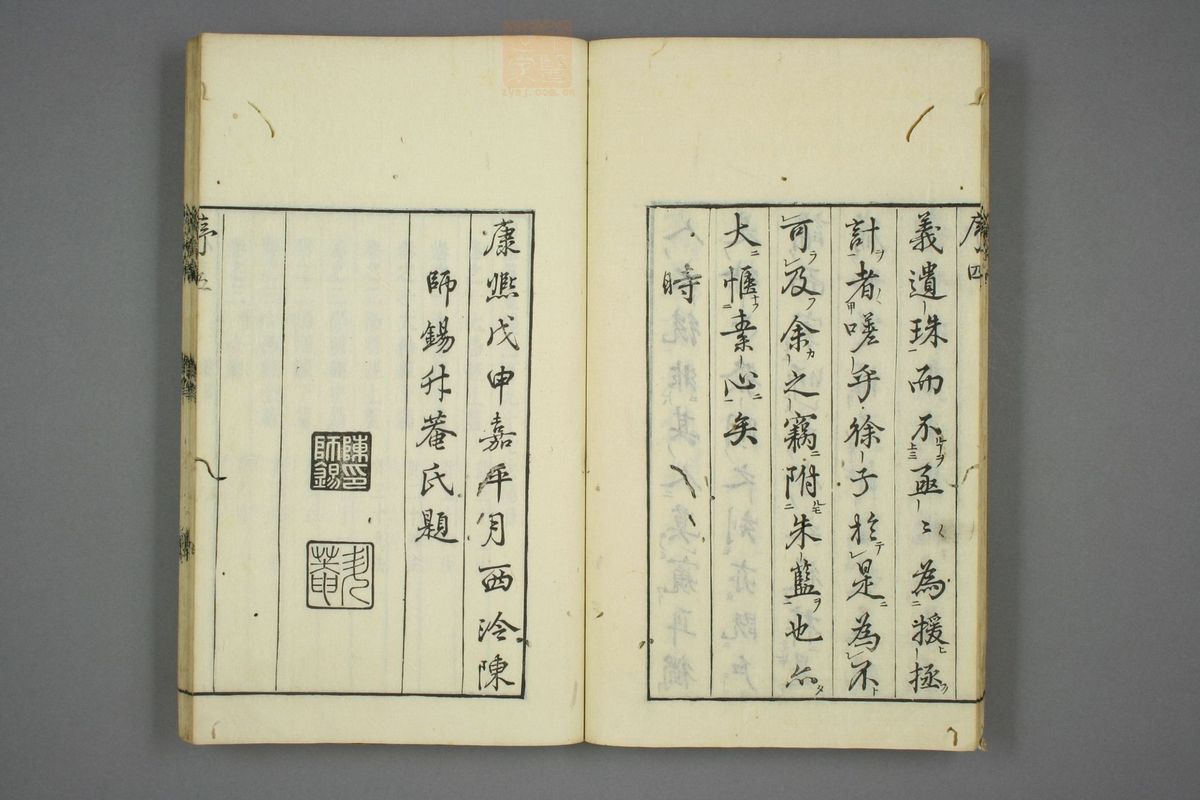 序 四
義遺珠而不亟〻為援拯
計者嘆乎徐子於是為不
可及余之竊附朱藍也亦
大愜素心矣
時
康熙戊申嘉平月西泠陳
師錫升菴氏題
陳印
師錫
菴
序 五
zysj.com.cn